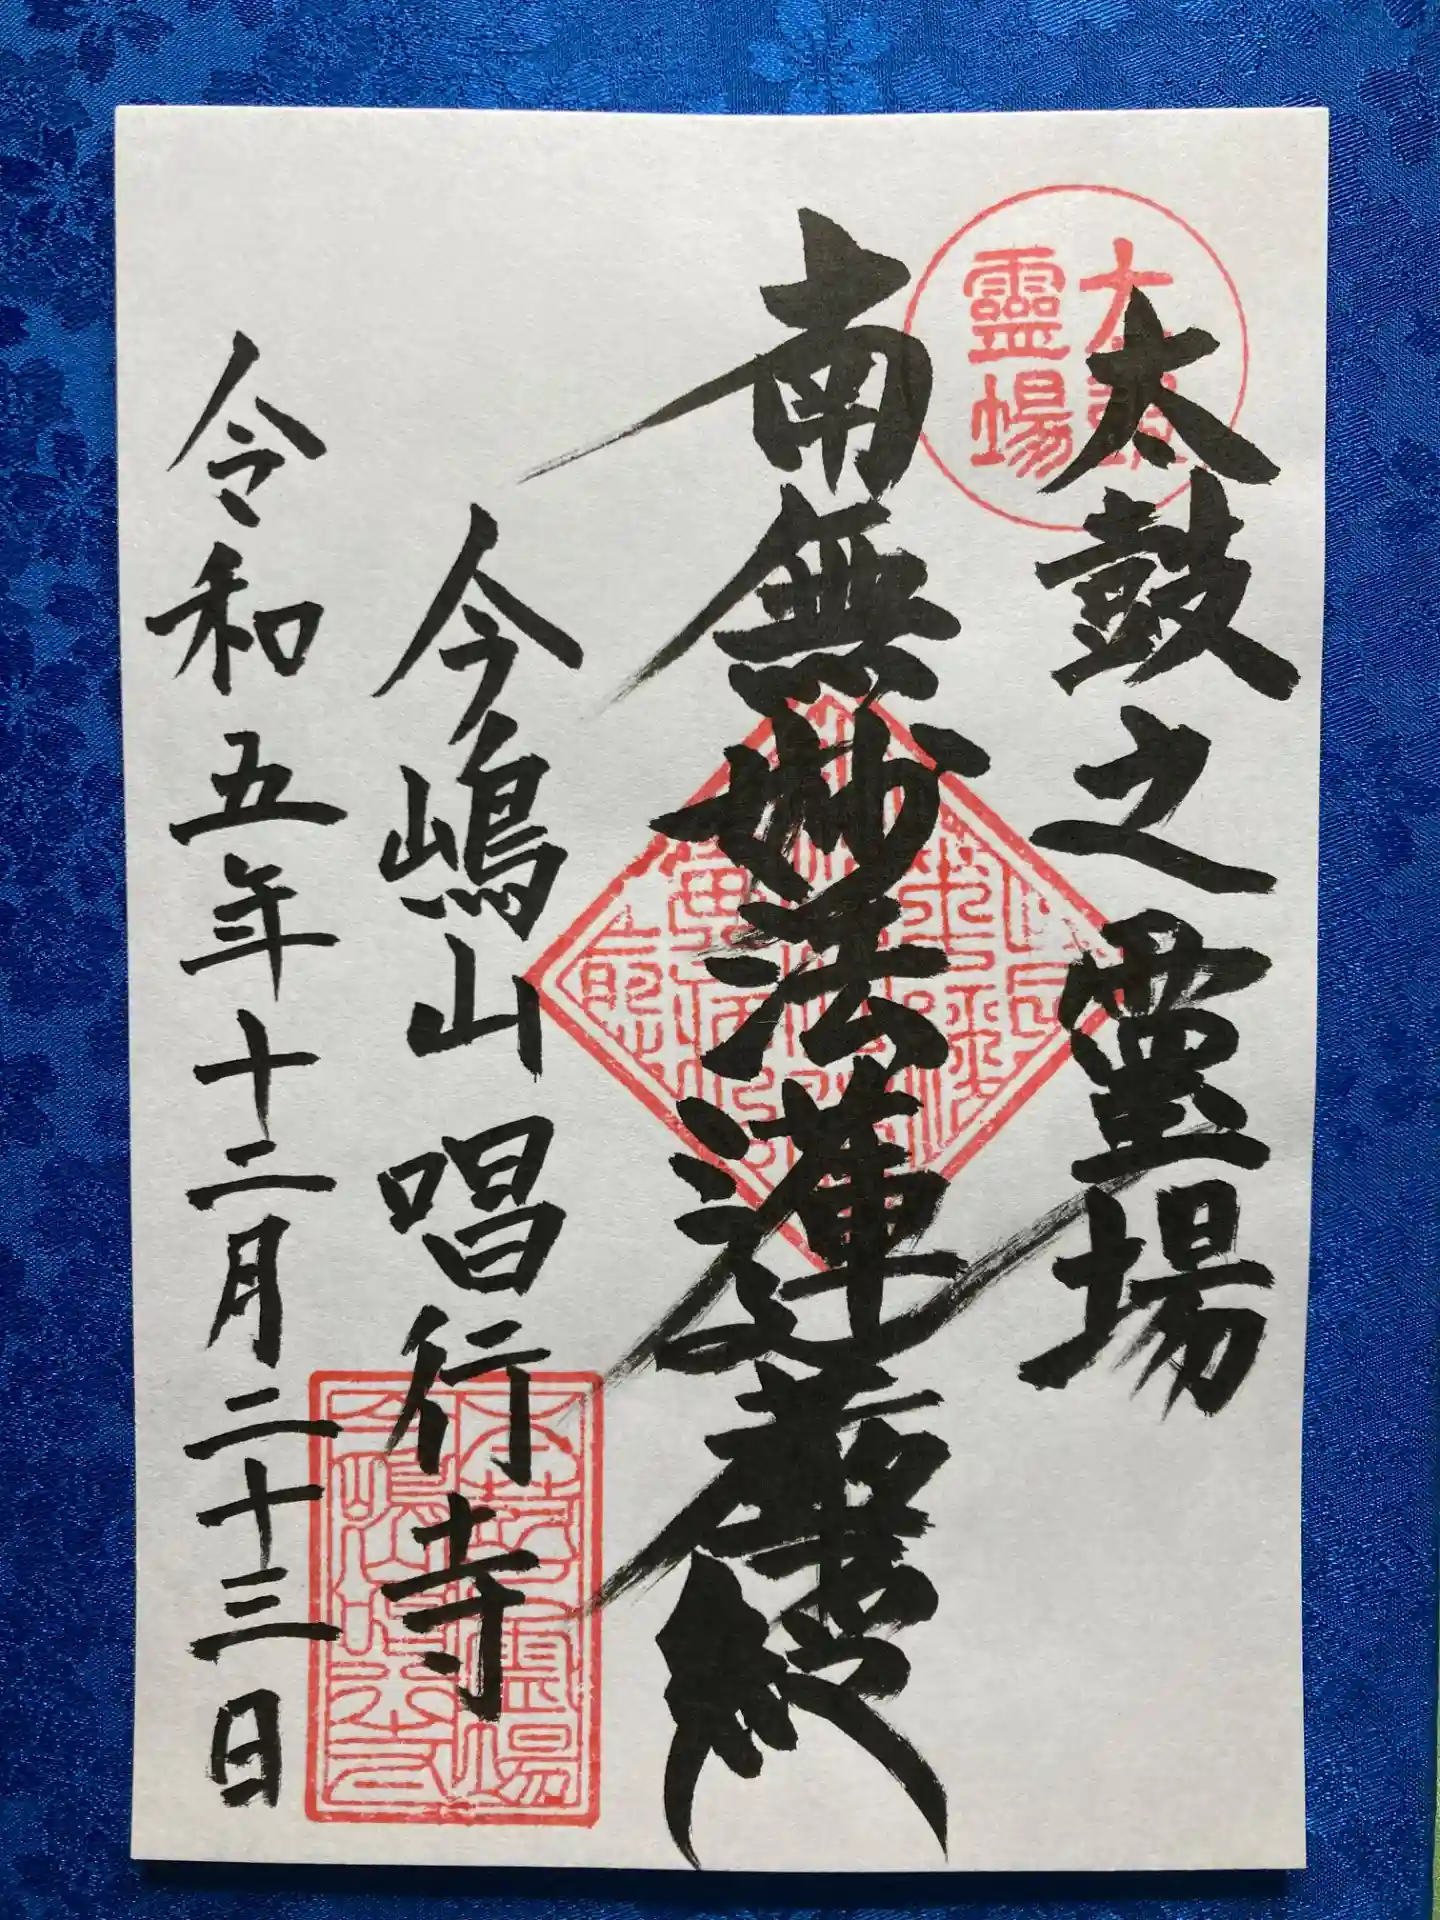 太鼓之霊場
南無妙法蓮華経
今嶋山 唱行寺
令和五年十二月二十三日
霊場